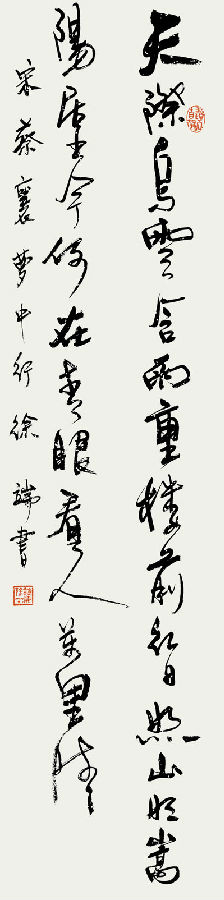 天際烏雲含雨重樓前紅日照山明嵩
陽居士今何在青眼看人萬里情
宋蔡襄夢中行徐端書